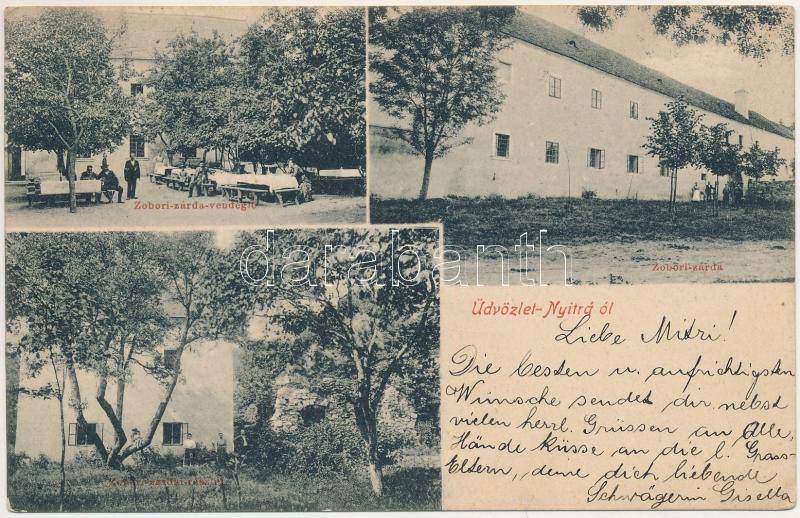 Zobori-zárda-vendéglő
Zobori-zárda
darabanth
Üdvözlet-Nyitrá ól
Liebe Mitzi!
Die besten u. aufrichtigsten
Wünsche sendet dir nebst
vielen herzl. Grüssen an Alle,
Hände küsse an die l. Gross-
Eltern, deine dich liebende
Schwägerin Gisella
Zobori-zárdai-részlet